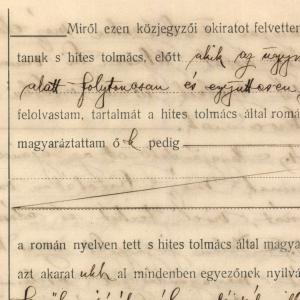 Miről ezen közjegyzői okiratot felvettem
tanuk s hites tolmács, előtt akik az ügy
alatt folytonosan és együttesen
felolvastam, tartalmát a hites tolmács által romá
magyaráztattam ők pedig
a román nyelven tett s hites tolmács által magya
azt akarat ukk al mindenben egyezőnek nyilvá